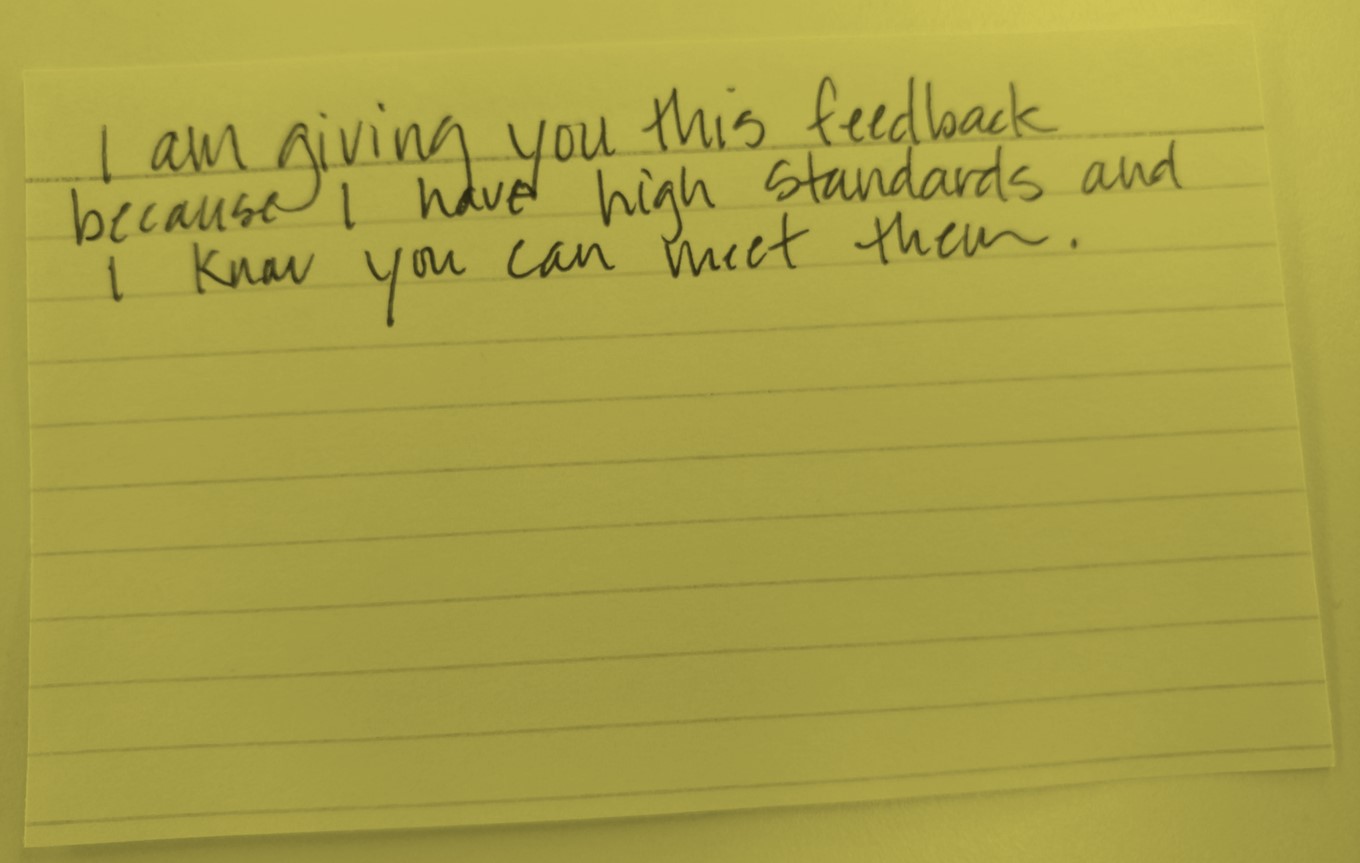 I am giving you this feedback
because I have high standards and
I know you can meet them.